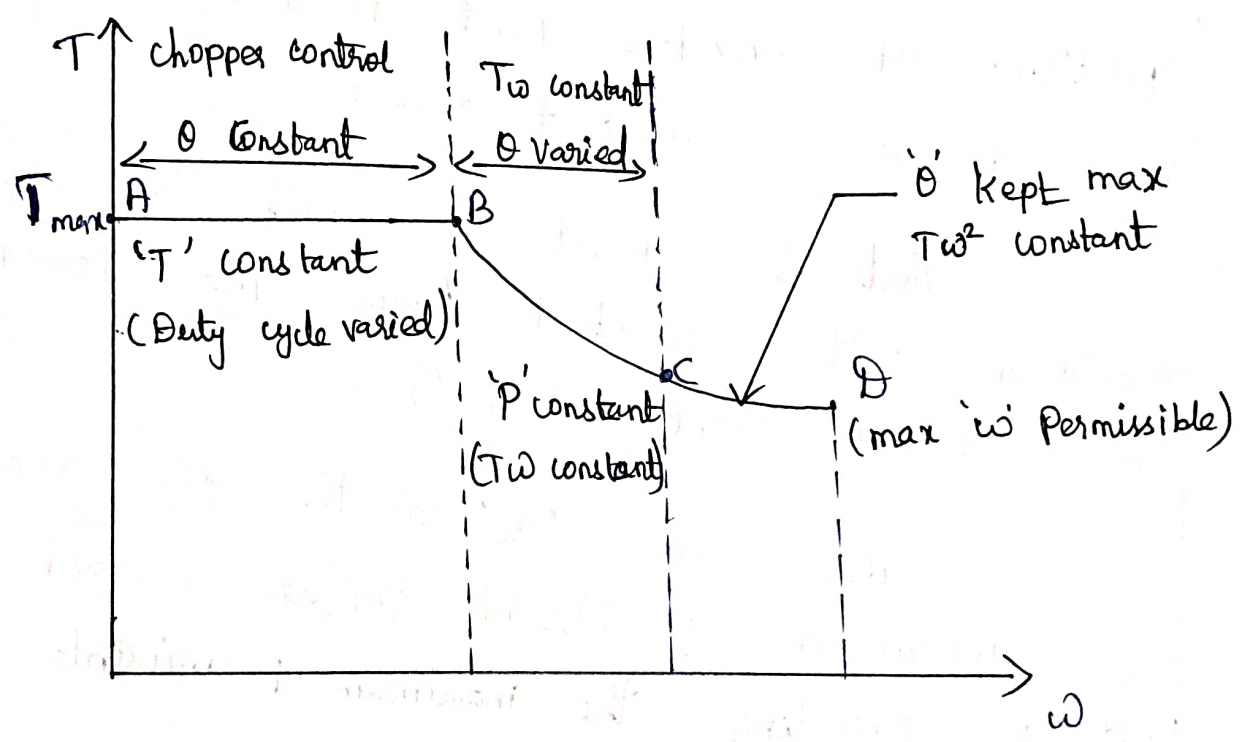 T
chopper control
θ Constant
Tω constant
θ varied
Tmax
A
B
'T' constant
(Duty cycle varied)
'θ' kept max
Tω² constant
'P' constant
(Tω constant)
C
D
(max 'ω' Permissible)
ω